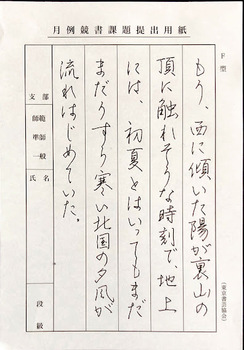 月例競書課題提出用紙
F型
もう、西に傾いた陽が裏山の
頂に触れそうな時刻で、地上
には、初夏とはいってもまだ
まだうすら寒い北国の夕風が
流れはじめていた。
支部
師範
準師
一般
氏名
段級
(東京書芸協会)